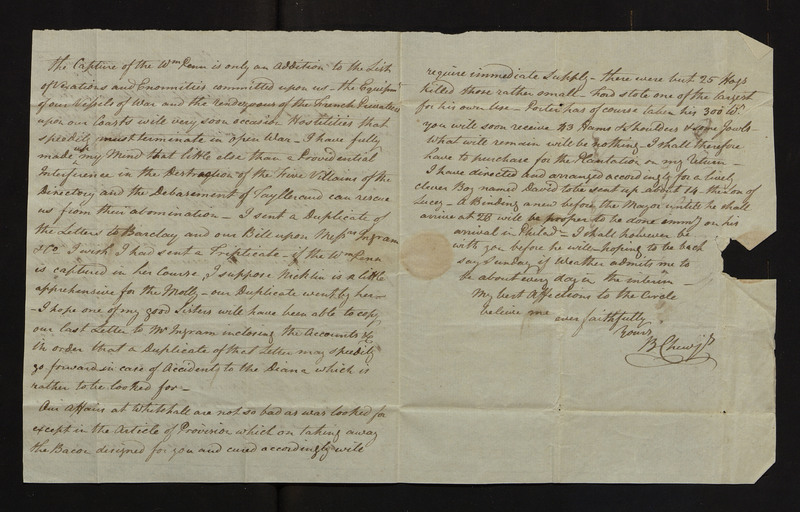 the Capture of the Wm Penn is only an Addition to the List
of Vexations and Enormities committed upon us - the Equipmt
of our Vessels of War and the rendezvous of the French Privateers
upon our Coasts will very soon occasion Hostilities that
speedily must terminate in open War - I have fully
made up my Mind that little else than a Providential
Interference in the Destruction of the Five Villains of the
Directory and the Debarement of Taylleraud can rescue
us from their abomination - I sent a Duplicate of
the Letters to Barclay and our Bill upon Messrs Ingram
&Co I wish I had sent a Triplicate - if the Wm Penn
is captured in her Course, I suppose Nicklin is a little
apprehensive for the Molly - our Duplicate went by her -
- I hope one of my good Sisters will have been able to copy
our last Letter to Mr Ingram inclosing the Accounts &c
in order that a Duplicate of that Letter may speedily
go forward in case of Accidents to the Diana which is
rather to be looked for -
Our Affairs at Whitehall are not so bad as was looked for
except in the Article of Provision which on taking away
the Bacon designed for you and cured accordingly will
require immediate Supply - there were but 25 Hogs
killed those rather small - had stole one of the largest
for his own Use - Porter has of course taken his 300 wt.
you will soon receive 43 Hams & Shoulders & some Jowls
What will remain will be nothing - I shall therefore
have to purchase for the Plantation on my return -
I have directed and arranged accordingly for a lively
clever Boy named David to be sent up about 14 - this son of
Lucy - A Binding anew before the Mayor untill he shall
arrive at 28 will be proper to be done immy on his
arrival in Philad - I shall however be
with you before he will - hoping to be back
say Sunday if Weather admits me to
be about every day in the interim -
My best Affections to the Circle
believe me ever faithfully
Yours
B Chew jr